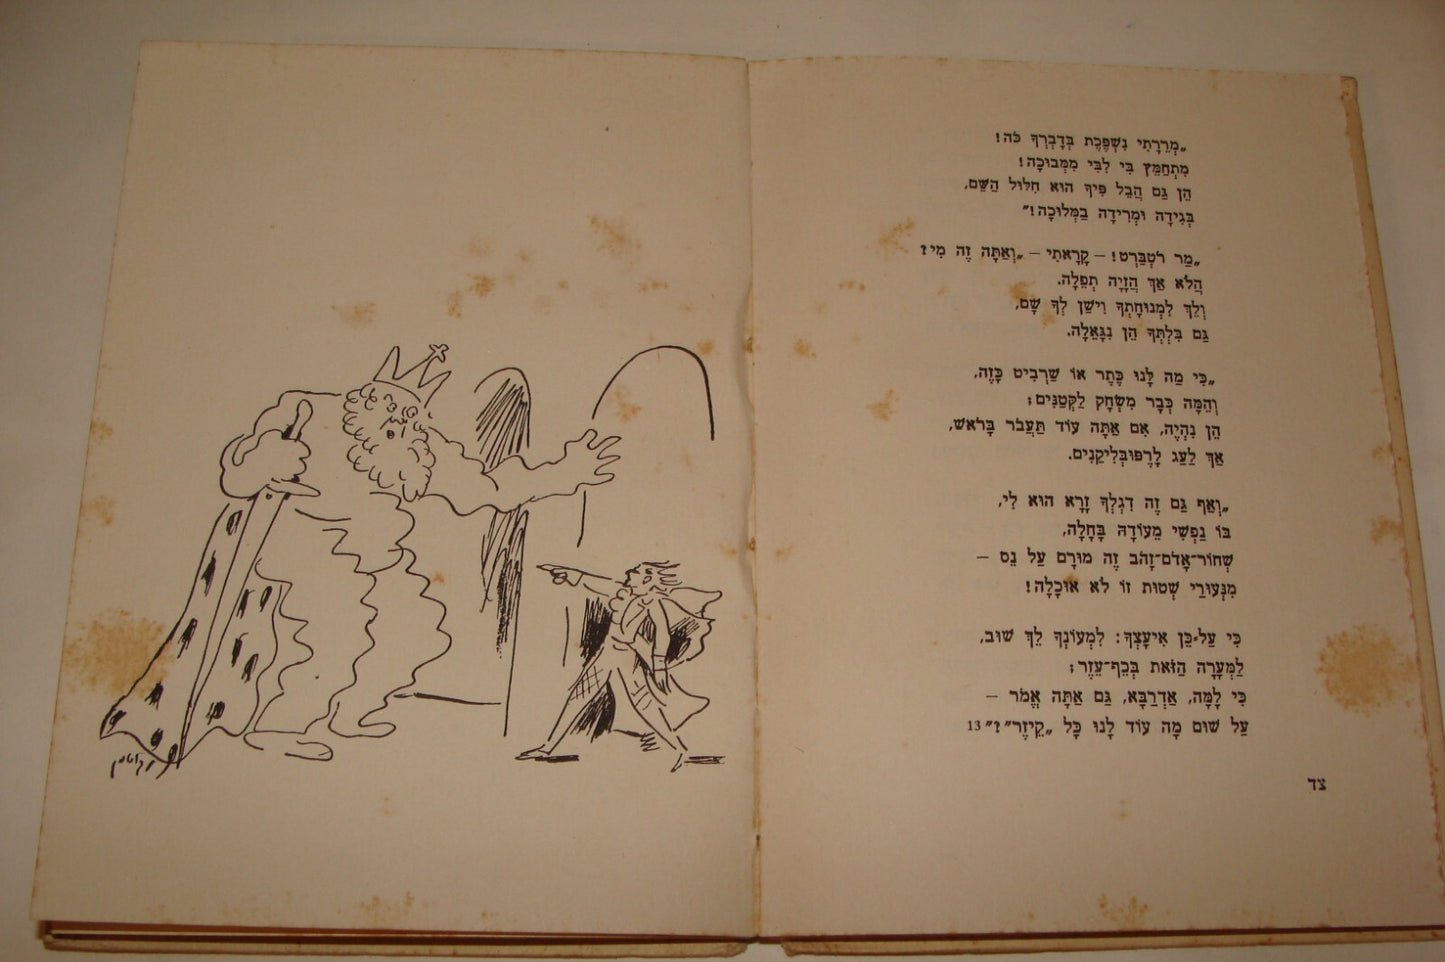 „מְרֵרָתִי נִשְׁפֶּכֶת בְּדָבְרְךָ כֹּה!
מִתְחַמֵּץ בִּי לִבִּי מִמְּבוּכָה!
הֵן גַּם הֲבֵל פִּיךָ הוּא חִלּוּל הַשֵּׁם,
בְּגִידָה וּמְרִידָה בַמְּלוּכָה!״
„מַר רֹטְבַּרְט! – קָרָאתִי – „וְאַתָּה זֶה מִי?
הֲלֹא אַךְ הֲזָיָה תְפֵלָה.
וְלֵךְ לִמְנוּחָתְךָ וִישַׁן לְךָ שָׁם,
גַּם בִּלְתְּךָ הֵן נִגָּאֵלָה.
„כִּי מַה לָּנוּ כֶּתֶר אוֹ שַׁרְבִיט כָּזֶה,
וְהֵמָּה כְּבָר מִשְׂחָק לַקְּטַנִּים;
הֵן נִהְיֶה, אִם אַתָּה עוֹד תַּעֲבֹר בָּרֹאשׁ,
אַךְ לַעַג לָרֶפּוּבְּלִיקָנִים.
„וְאַף גַּם זֶה דִגְלְךָ זָרָא הוּא לִי,
בּוֹ נַפְשִׁי מֵעוֹדָהּ בָּחָלָה,
שְׁחוֹר־אָדֹם־זָהֹב זֶה מוּרָם עַל נֵס –
מִנְּעוּרַי שְׁטוּת זוֹ לֹא אוּכָלָה!
כִּי עַל־כֵּן אִיעָצְךָ: לִמְעוֹנְךָ לֵךְ שׁוּב,
לַמְּעָרָה הַזֹּאת בְּכֵף־עֵזֶר;
כִּי לָמָּה, אַדְרַבָּא, גַּם אַתָּה אֱמֹר –
עַל שׁוּם מָה עוֹד לָנוּ כָּל „קֵיזֶר״?״ 13
צד